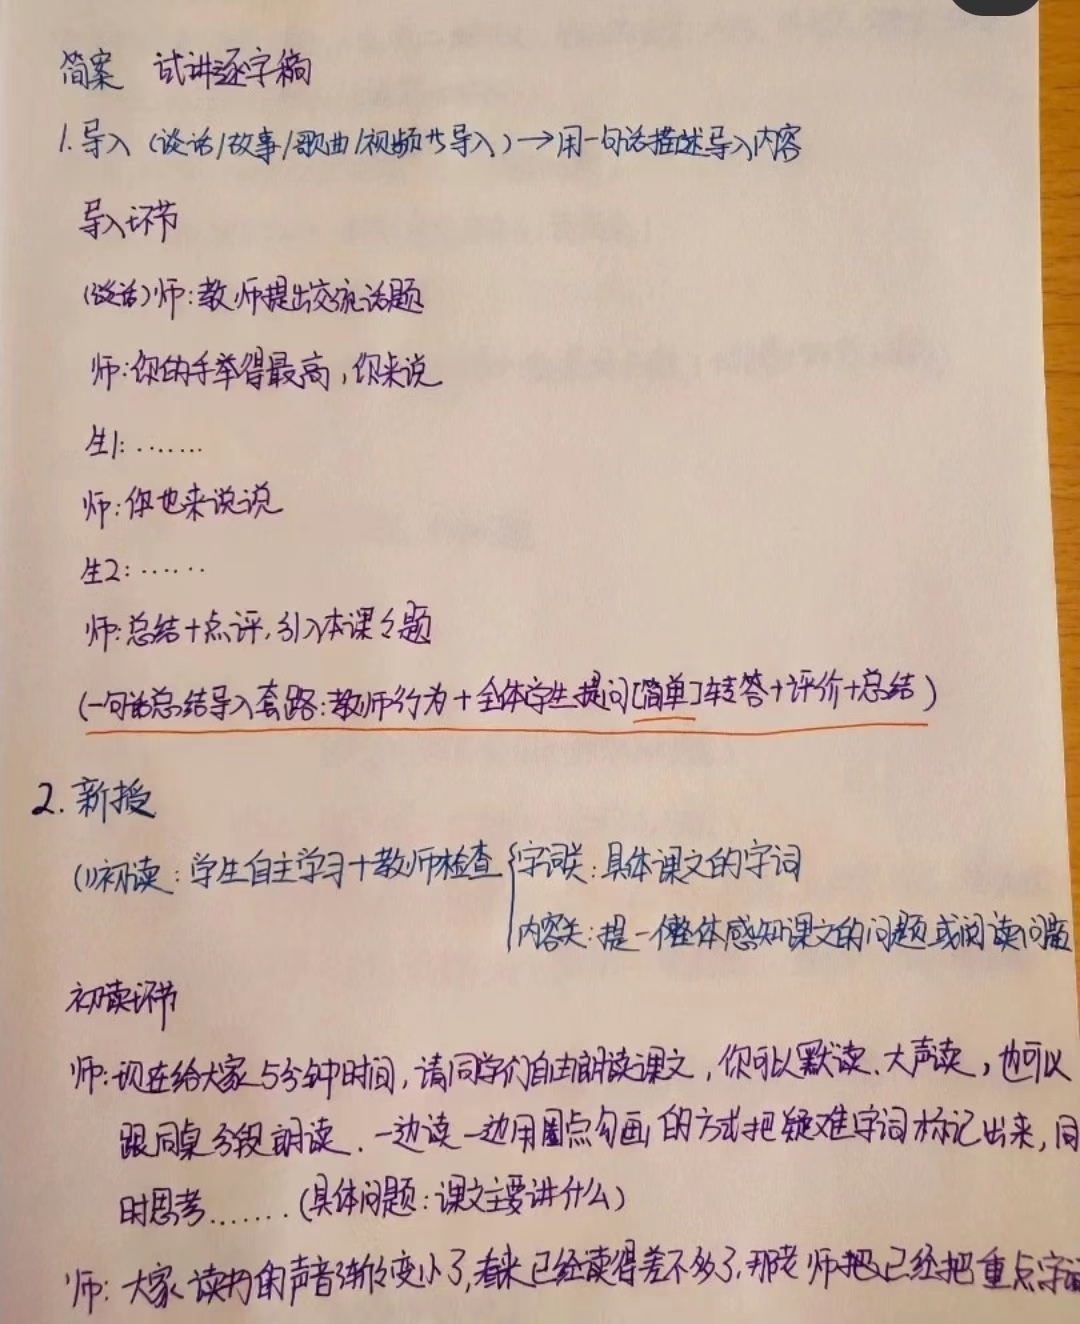 简案 试讲逐字稿
1.导入(谈话/故事/歌曲/视频 导入)→用一句话描述导入内容
导入环节
(谈话)师:教师提出交流话题
师:你的手举得最高,你来说
生1:.......
师:你也来说说
生2:......
师:总结+点评,引入本课 题
(一句话总结导入套路:教师行为+全体学生提问[简单] 答+评价+总结)
2.新授
(1)初读:学生自主学习+教师检查{字词关:具体课文的字词
内容关:提一个整体感知课文的问题或阅读问题
初读环节
师:现在给大家5分钟时间,请同学们自由朗读课文,你可以默读、大声读,也可以
跟同桌分段朗读.一边读一边用圈点勾画的方式把疑难字词标记出来,同
时思考.......(具体问题:课文主要讲什么)
师:大家读书的声音渐渐变小了,看来已经读得差不多了,那老师把已经把重点字